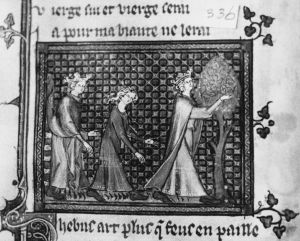 vierge sui et vierge seru
336
a pour ma biaute ne lerai
hebus art plus q̃ feus en paille